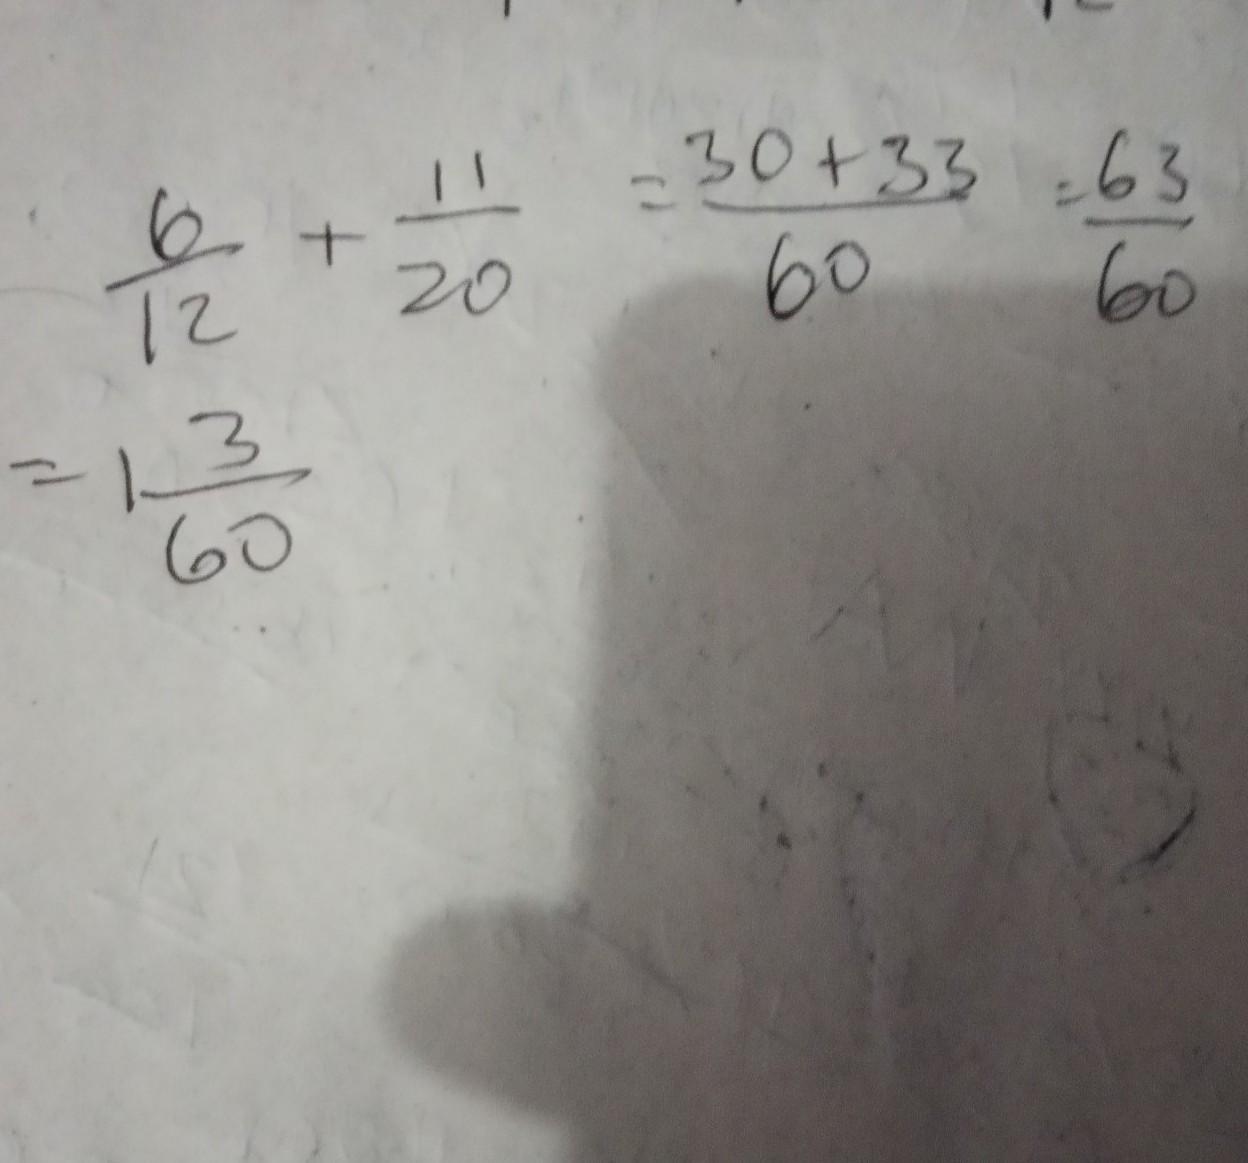 6/12 + 11/20 = 30+33/60 = 63/60
= 1 3/60